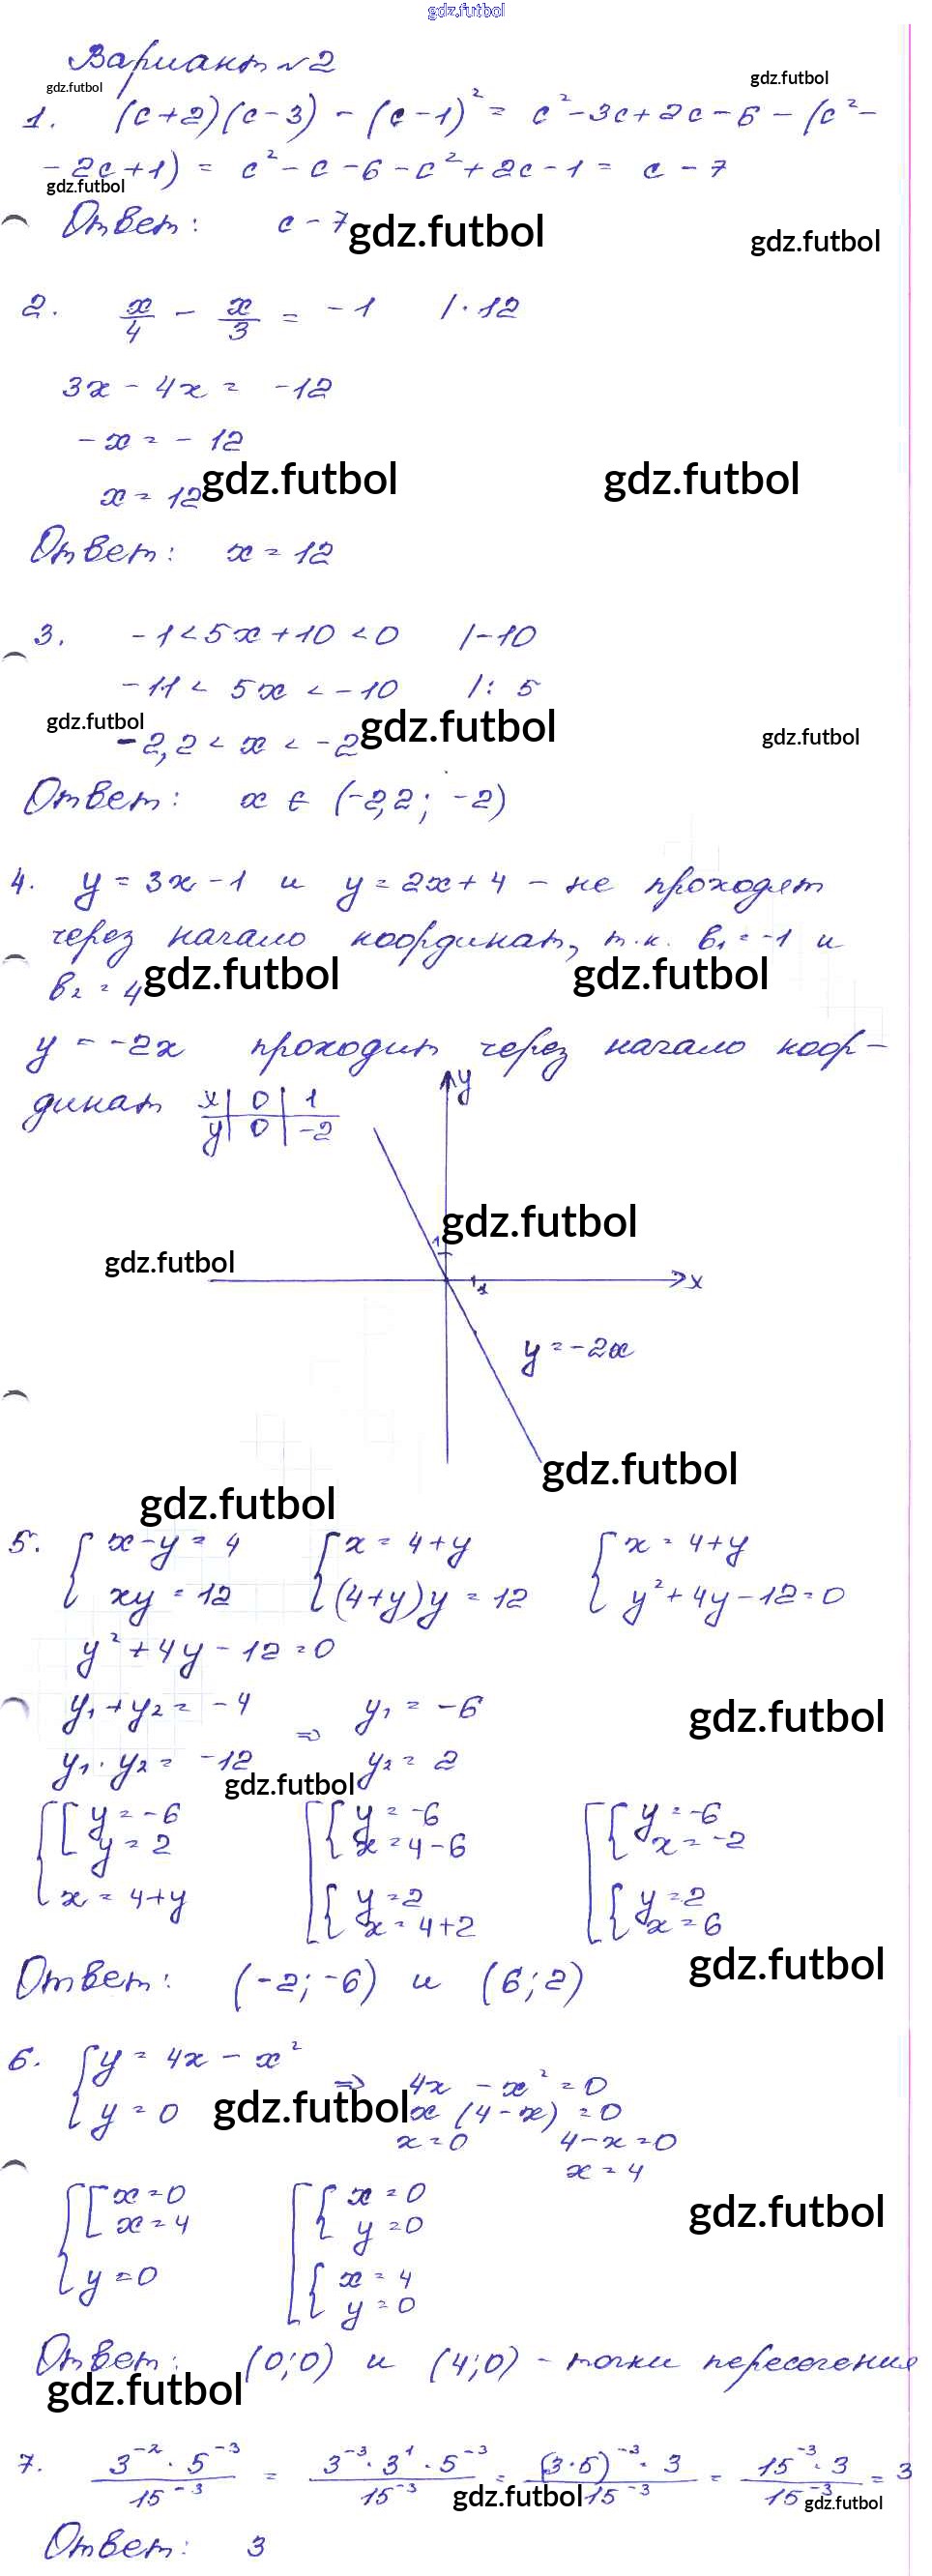 gdz.futbol
Вариант №2
gdz.futbol gdz.futbol
1. (c+2)(c-3) - (c-1)² = c²-3c+2c-6-(c²-
-2c+1) = c²-c-6-c²+2c-1 = c-7
gdz.futbol
Ответ: c-7
gdz.futbol gdz.futbol
2. x/4 - x/3 = -1 |·12
3x - 4x = -12
-x = -12
x = 12
gdz.futbol gdz.futbol
Ответ: x = 12
3. -1<5x+10<0 |-10
-11 < 5x < -10 |: 5
gdz.futbol gdz.futbol gdz.futbol
-2,2 < x < -2
Ответ: x ∈ (-2,2; -2)
4. y = 3x-1 и y = 2x+4 - не проходят
через начало координат, т.к. b₁ = -1 и
b₂ = 4
gdz.futbol gdz.futbol
y = -2x проходит через начало коор-
динат x | 0 | 1
y | 0 | -2
y
gdz.futbol
1
gdz.futbol
1 x
y = -2x
gdz.futbol
gdz.futbol
5. { x-y = 4 { x = 4+y { x = 4+y
xy = 12 (4+y)y = 12 y²+4y-12=0
y²+4y-12=0
y₁+y₂ = -4 y₁ = -6
⇒
y₁·y₂ = -12 y₂ = 2
gdz.futbol
gdz.futbol
{ [ y = -6 [ { y = -6 [ { y = -6
y = 2 x = 4-6 x = -2
x = 4+y { y = 2 { y = 2
x = 4+2 x = 6
gdz.futbol
Ответ: (-2; -6) и (6; 2)
6. { y = 4x - x² ⇒ 4x - x² = 0
y = 0 x (4-x) = 0
gdz.futbol
x = 0 4-x=0
x = 4
{ [ x=0 [ { x = 0
x=4 y = 0
gdz.futbol
y=0 { x = 4
y = 0
Ответ: (0;0) и (4;0) - точки пересечения
gdz.futbol
7. 3⁻²·5⁻³/15⁻³ = 3⁻³·3¹·5⁻³/15⁻³ = (3·5)⁻³·3/15⁻³ = 15⁻³·3/15⁻³ = 3
gdz.futbol gdz.futbol
Ответ: 3